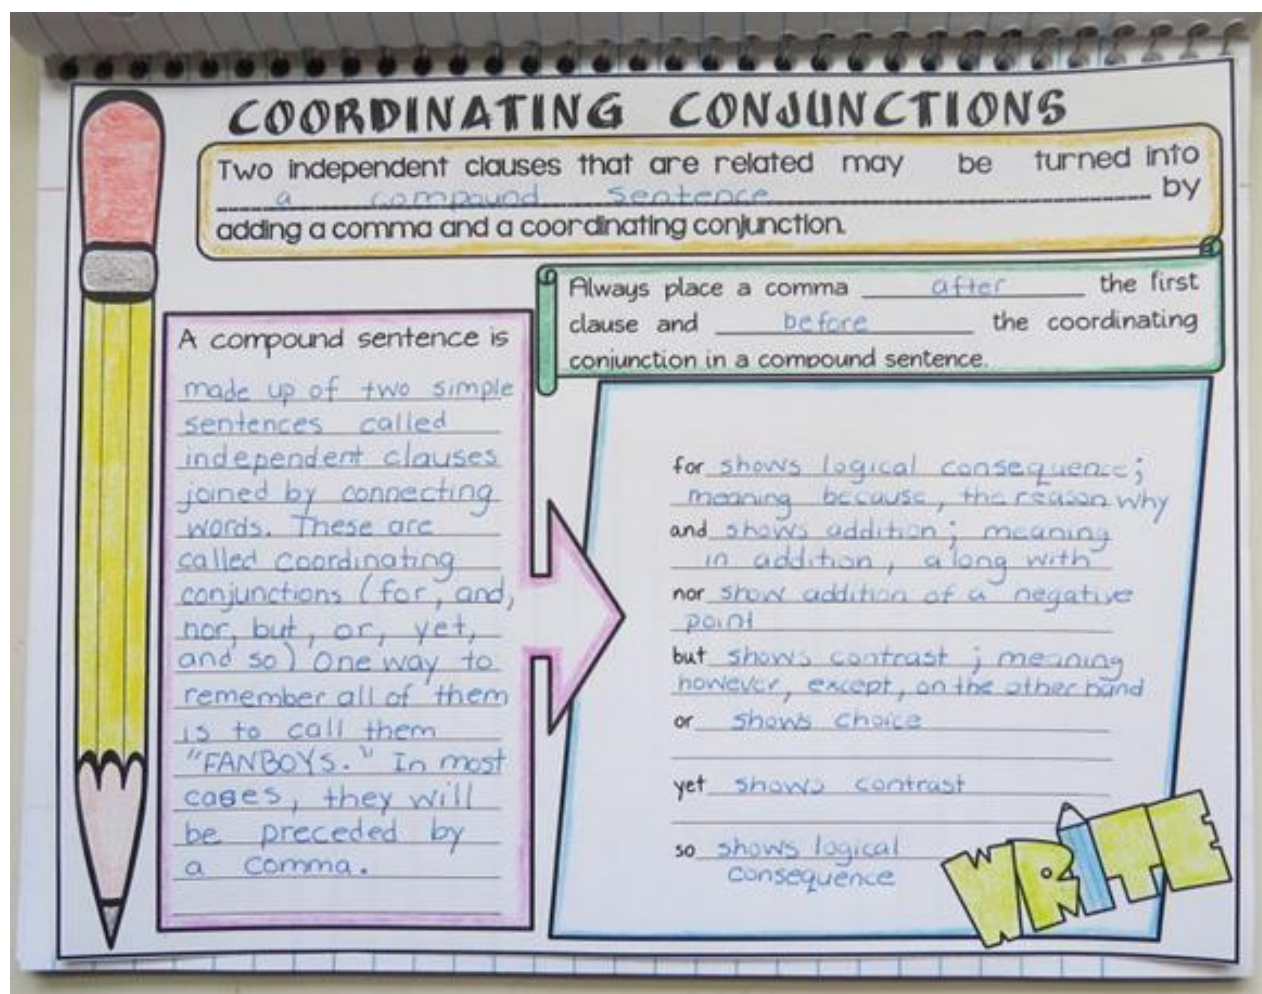 COORDINATING CONJUNCTIONS
Two independent clauses that are related may be turned into
a compound sentence by
adding a comma and a coordinating conjunction.
Always place a comma after the first
clause and before the coordinating
conjunction in a compound sentence.
A compound sentence is
made up of two simple
sentences called
independent clauses
joined by connecting
words. These are
called coordinating
conjunctions (for, and,
nor, but, or, yet,
and so) One way to
remember all of them
is to call them
"FANBOYS." In most
cases, they will
be preceded by
a comma.
for shows logical consequence;
meaning because, the reason why
and shows addition; meaning
in addition, along with
nor show addition of a negative
point
but shows contrast; meaning
however, except, on the other hand
or shows choice
yet shows contrast
so shows logical
consequence
WRITE